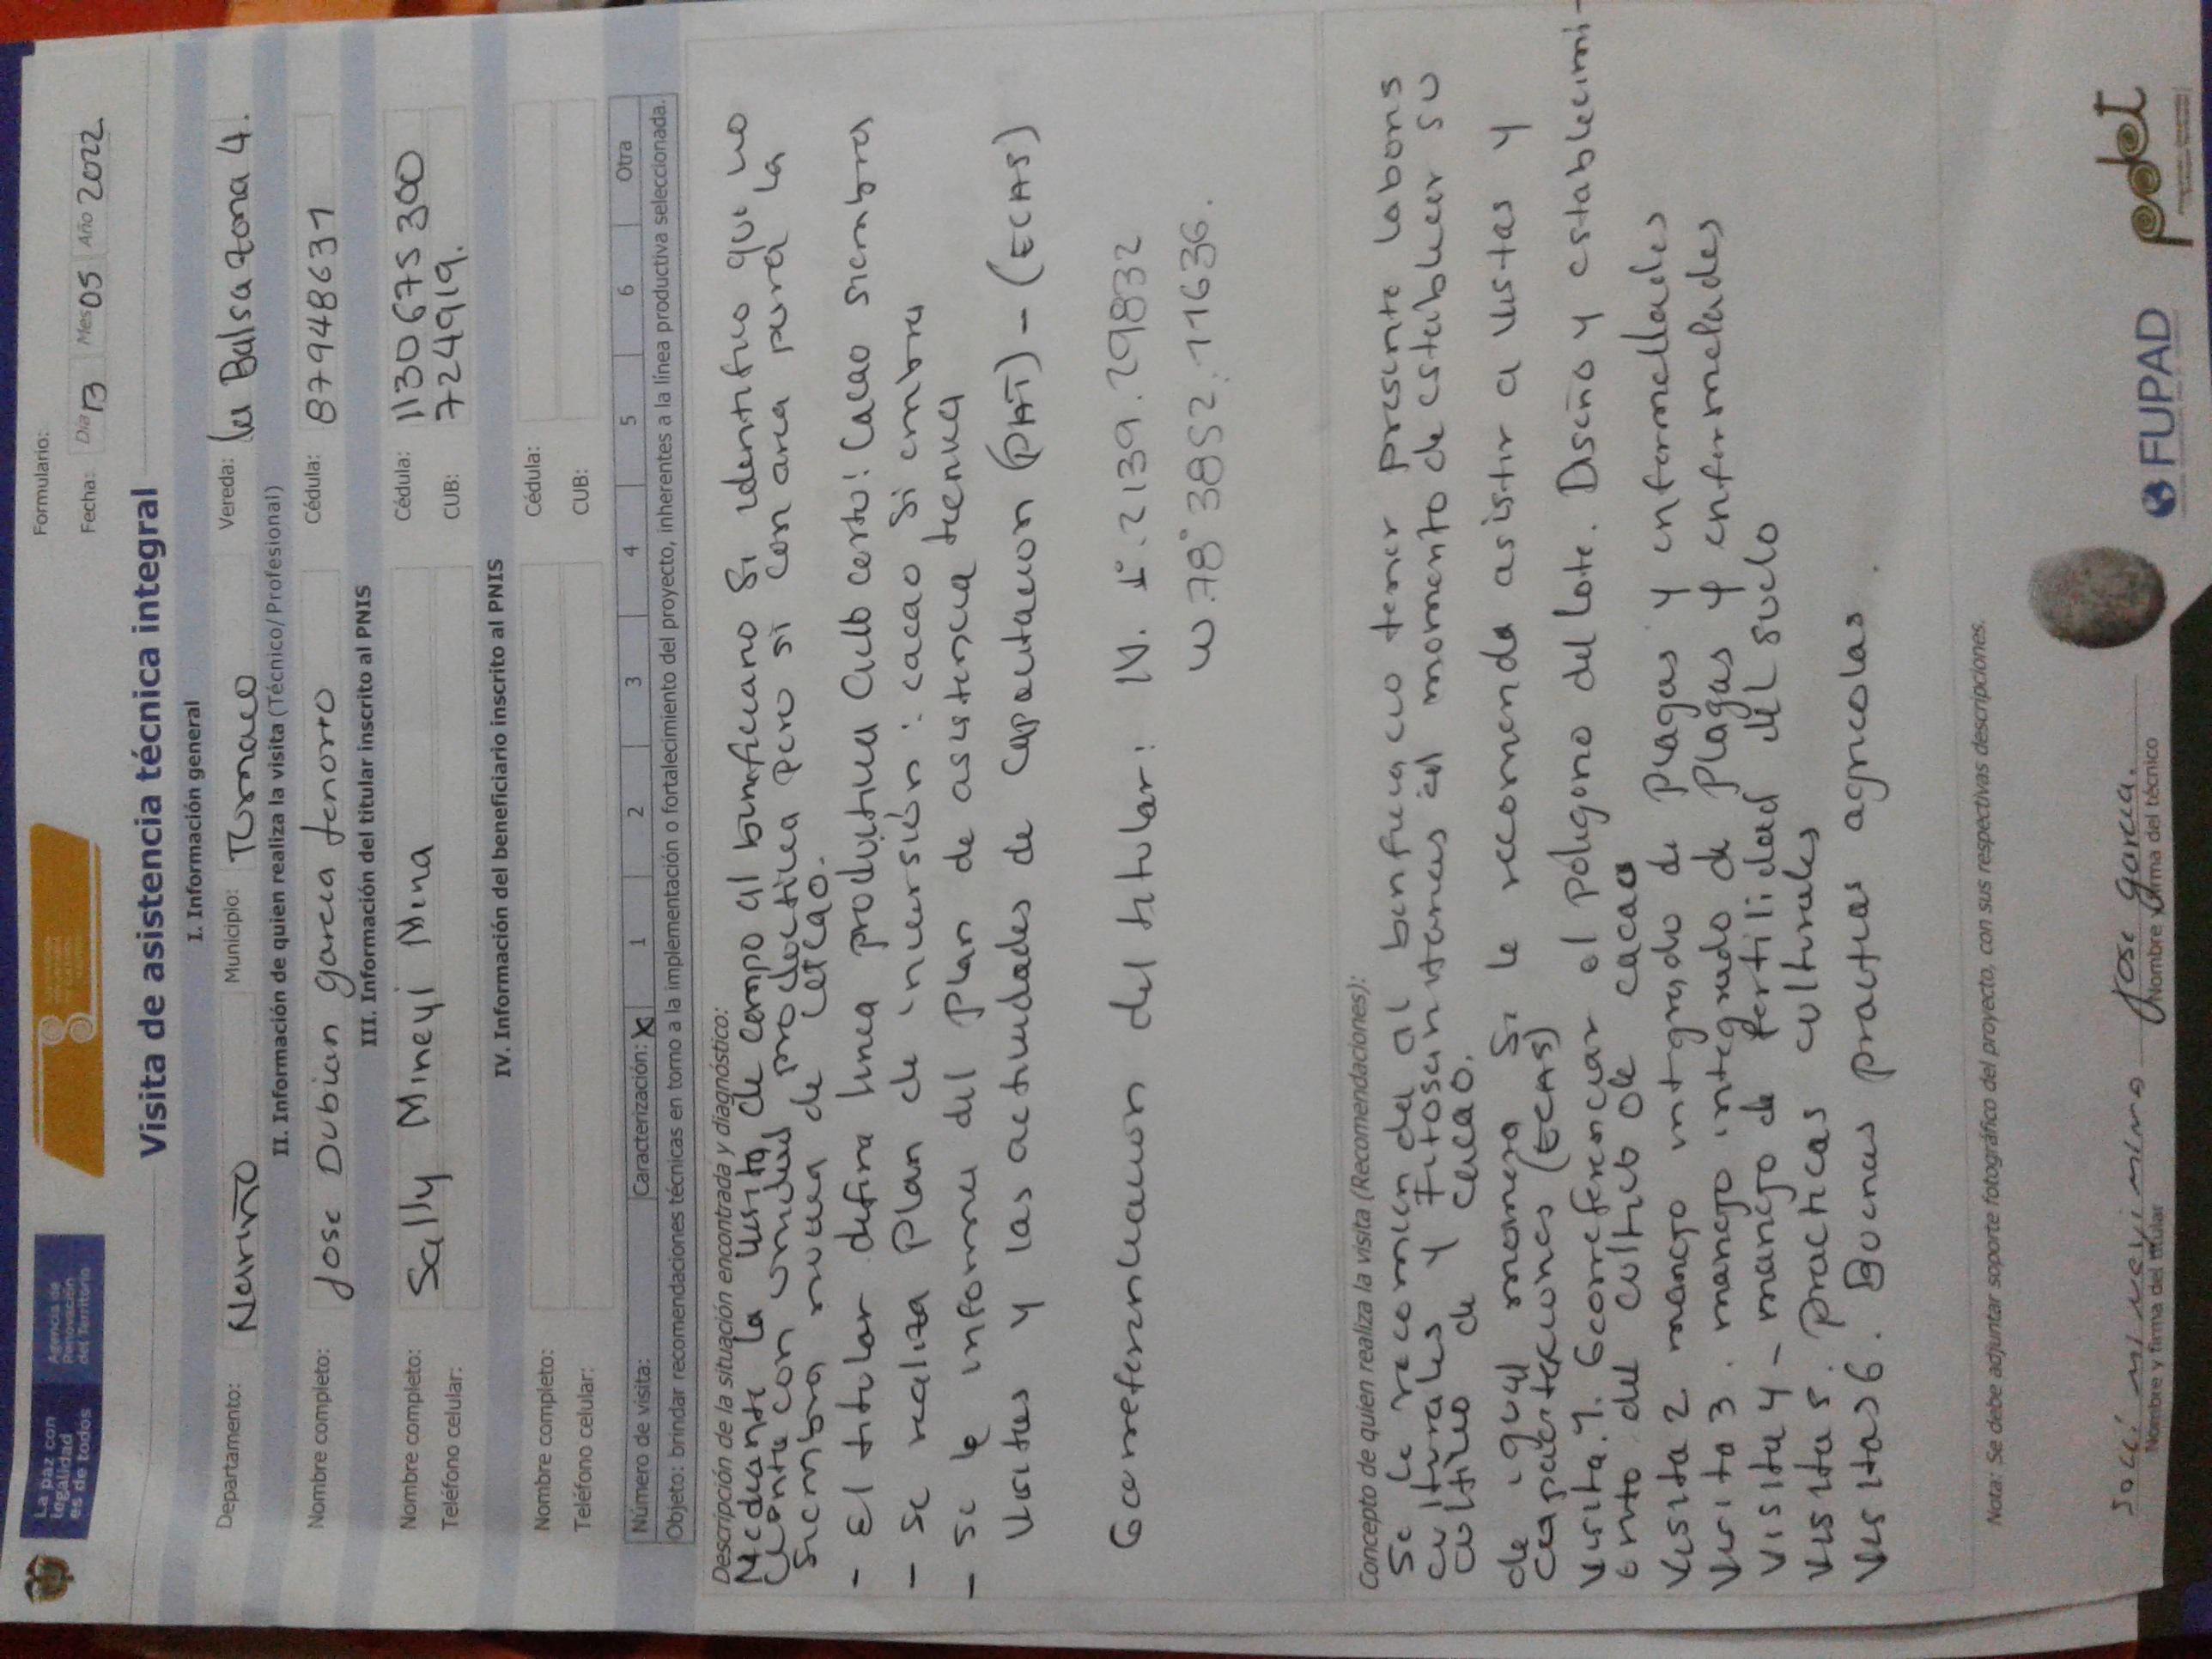 La paz con
legalidad
es de todos
Agencia de
Renovación
del Territorio
Formulario:
Fecha: Día 13 Mes 05 Año 2022
Visita de asistencia técnica integral
I. Información general
Departamento: Nariño Municipio: Tumaco Vereda: la Balsa zona 4.
II. Información de quien realiza la visita (Técnico/ Profesional)
Nombre completo: Jose Dubian garcia tenorio Cédula: 87948631
III. Información del titular inscrito al PNIS
Nombre completo: Sally Mineyi Mina Cédula: 1130675300
Teléfono celular: CUB: 7224919.
IV. Información del beneficiario inscrito al PNIS
Nombre completo: Cédula:
Teléfono celular: CUB:
Número de visita: Caracterización: X 1 2 3 4 5 6 Otra
Objeto: brindar recomendaciones técnicas en torno a la implementación o fortalecimiento del proyecto, inherentes a la línea productiva seleccionada.
Descripción de la situación encontrada y diagnóstico:
Mediante la visita de campo al beneficiario Se identifico que no
cuenta con unidad productiva pero si con area para la
siembra nueva de cacao.
- El titular define linea productiva Ciclo corto: Cacao siembra
- se realiza Plan de inversión: cacao Si embra
- se le informa del Plan de asistencia tecnica
visitas y las actividades de Capacitacion (PAT) - (ECAS)
Georreferenciacion del titular: N. 1°.2139.29832
W.78°3852.11636.
Concepto de quien realiza la visita (Recomendaciones):
Se le recomienda al beneficiario tener presente labores
culturales y Fitosanitarias en el momento de establecer su
cultivo de cacao.
de igual manera Se le recomienda asistir a visitas y
capacitaciones (ECAS)
visita 1. Georreferenciar el poligono del lote. Diseño y establecimi-
ento del cultivo de cacao
visita 2 manejo integrado de Plagas y enfermedades
visita 3. manejo integrado de Plagas y enfermedades
visita 4 - manejo de fertilidad del suelo
visita 5. Practicas culturales
visitas 6. Buenas practicas agricolas.
Nota: Se debe adjuntar soporte fotográfico del proyecto, con sus respectivas descripciones.
Jose garcia.
Nombre y firma del titular Nombre y firma del técnico
FUPAD pdet